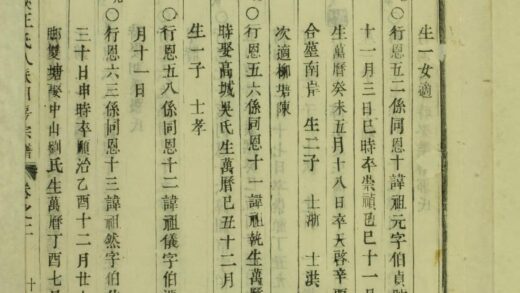 生一女適
〇行恩五二係同恩十諱祖元字伯貞
十一月三日巳時卒崇禎己巳十一月
生萬曆癸未五月十八日卒天啓辛
合墓南岸 生二子 士漸 士洪
次適柳碧陳
〇行恩五六係同恩十一諱祖執生萬
時娶高城吳氏生萬曆己丑十二月
生一子 士孝
〇行恩五八係同恩十二諱祖儀字伯
月十一日
〇行恩六三係同恩十三諱祖然字伯
三十日申時卒順治乙酉十二月廿
雙塘娶中山劉氏生萬曆丁酉七
氏 宗譜 卷之二 十